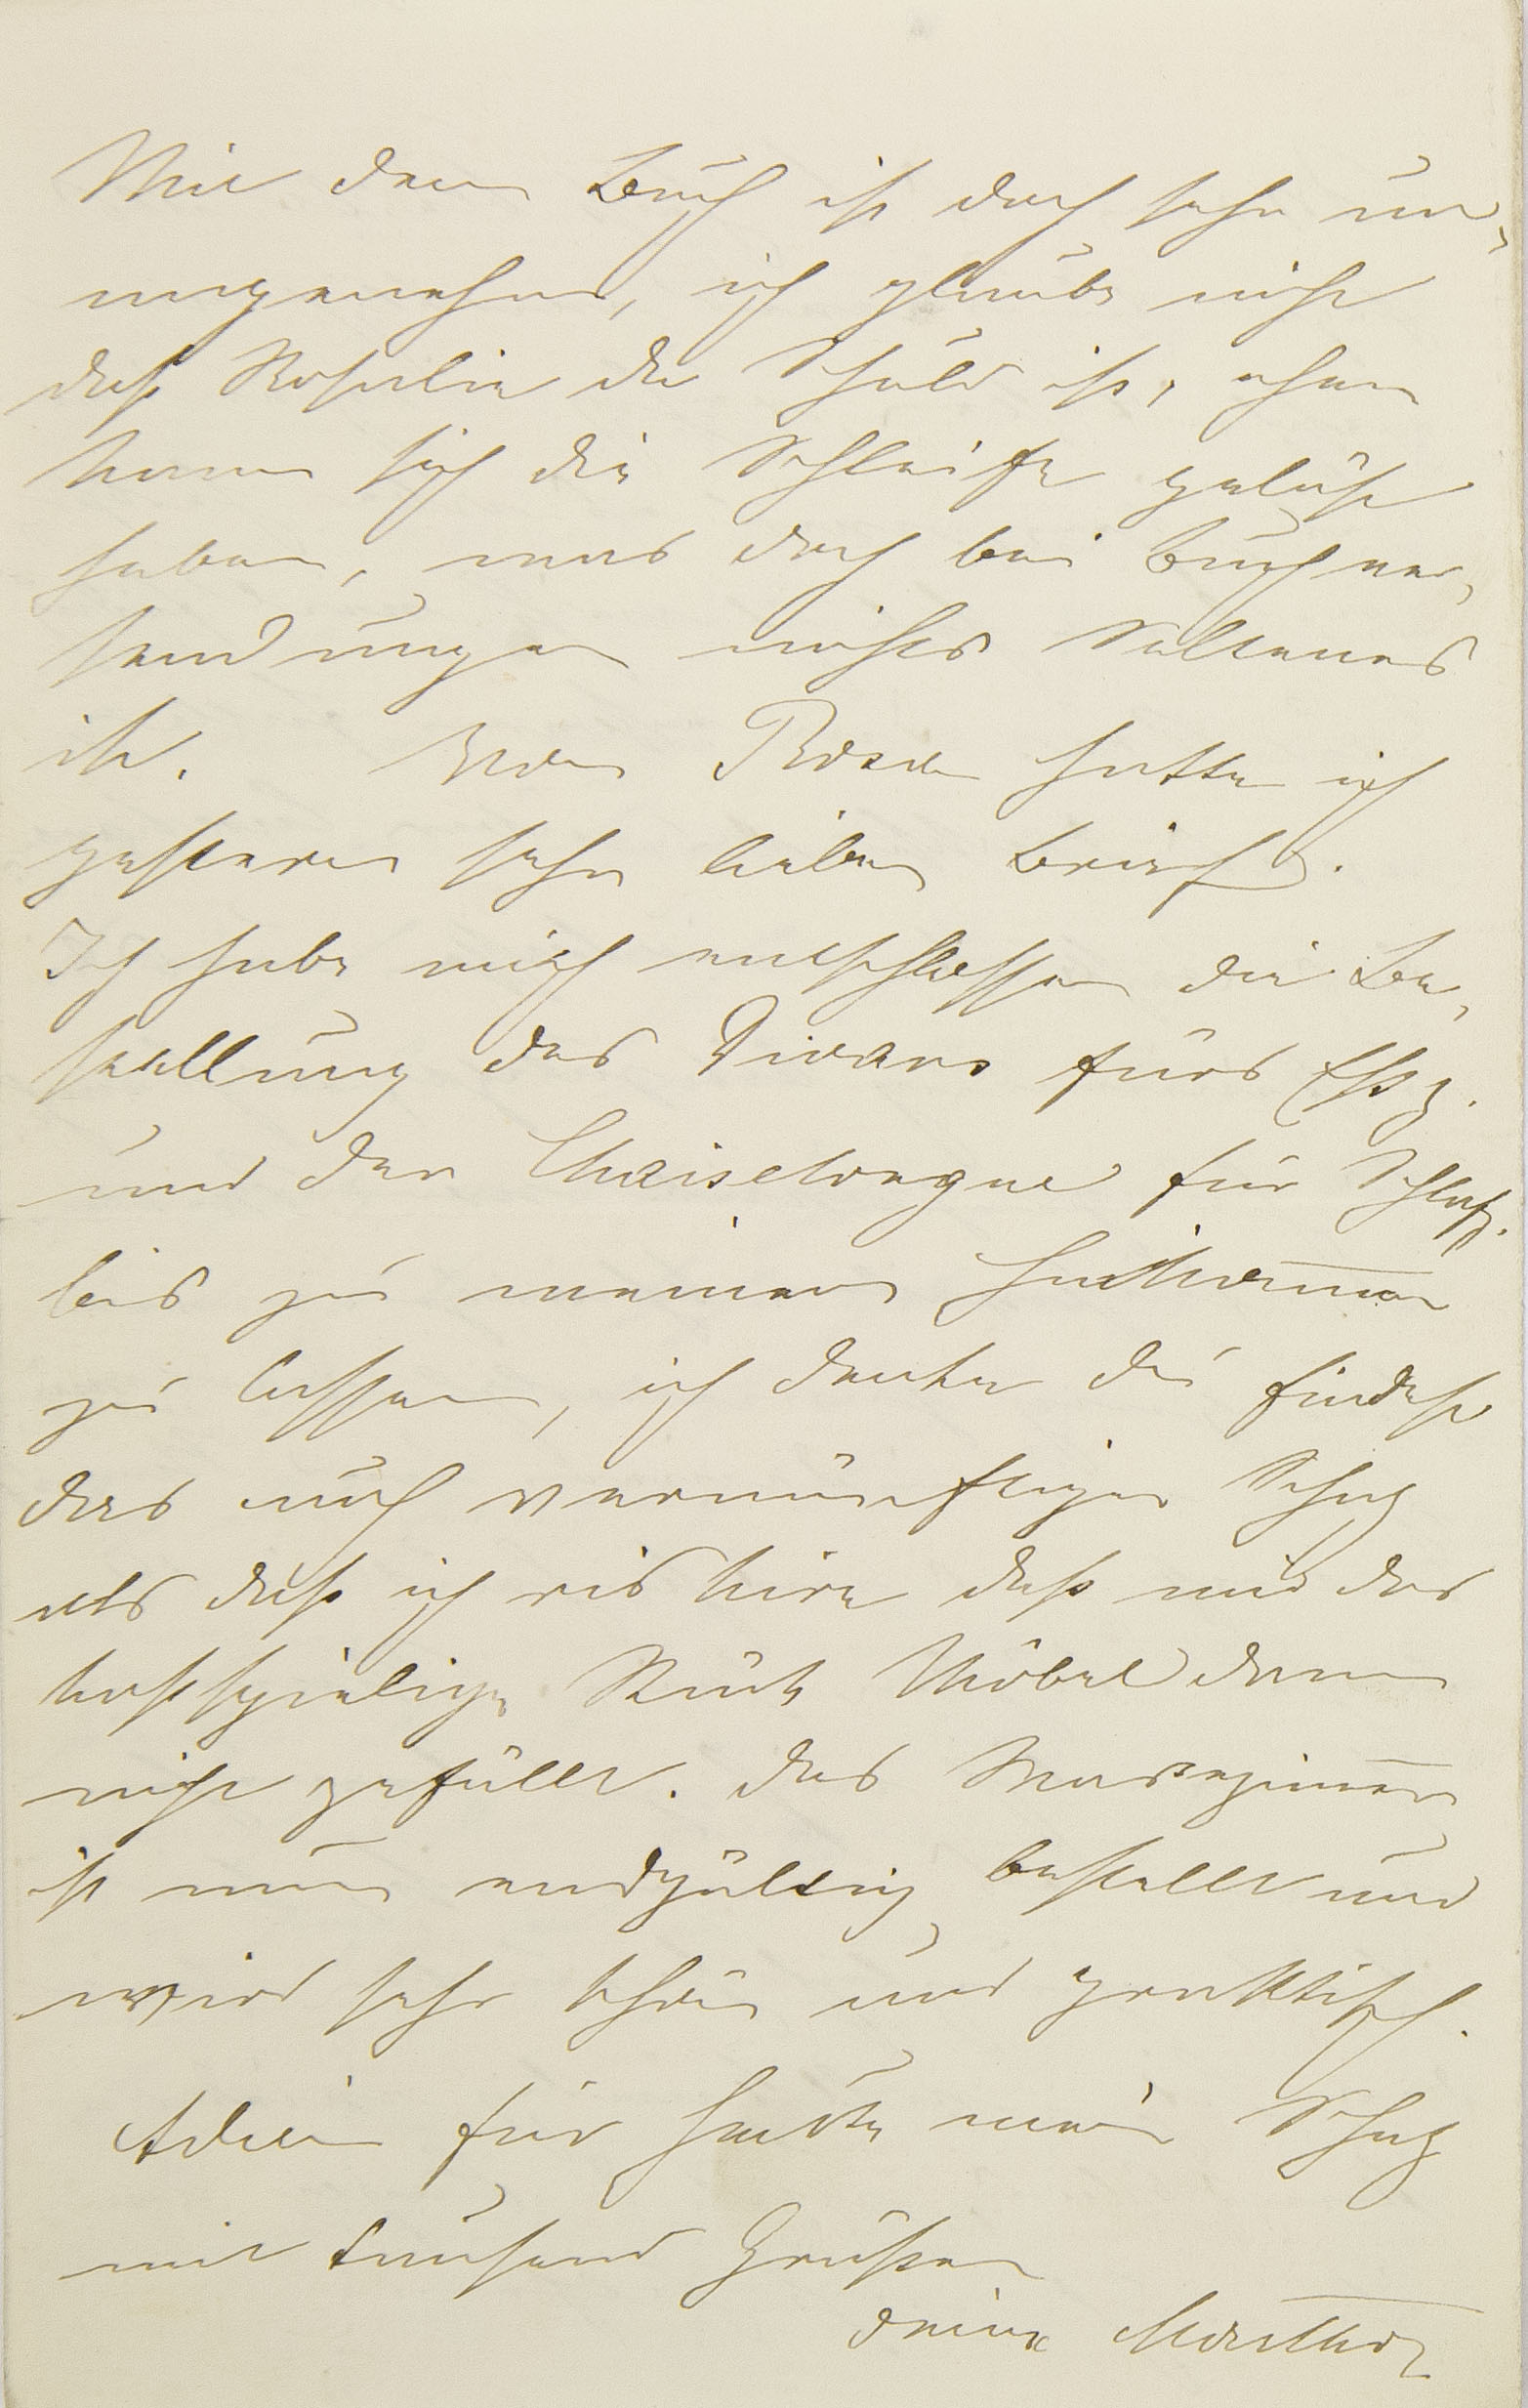 Mit dem Buch ist doch sehr un-
angenehm, ich glaube nicht
daß Rosalie da Schuld ist, eher
kann sich die Schleife gelöst
haben, was doch bei Buchver-
sendungen nichts Seltenes
ist. Von Rosa hatte ich
gestern sehr lieben Brief.
Ich habe mich entschlossen die Be-
stellung des Divans fürs Eßz.
und der Chaiselongue für Schlafz.
bis zu meinem Hinkom̅en
zu lassen, ich denke du findest
das auch vernünftiger Schatz
als daß ich riskire daß mir das
kostspielige Stück Möbel dann
nicht gefällt. Das
ist nun endgültig bestellt und
wird sehr schön und praktisch.
Adieu für heute mein Schatz
mit tausend Grüßen
deine Martha